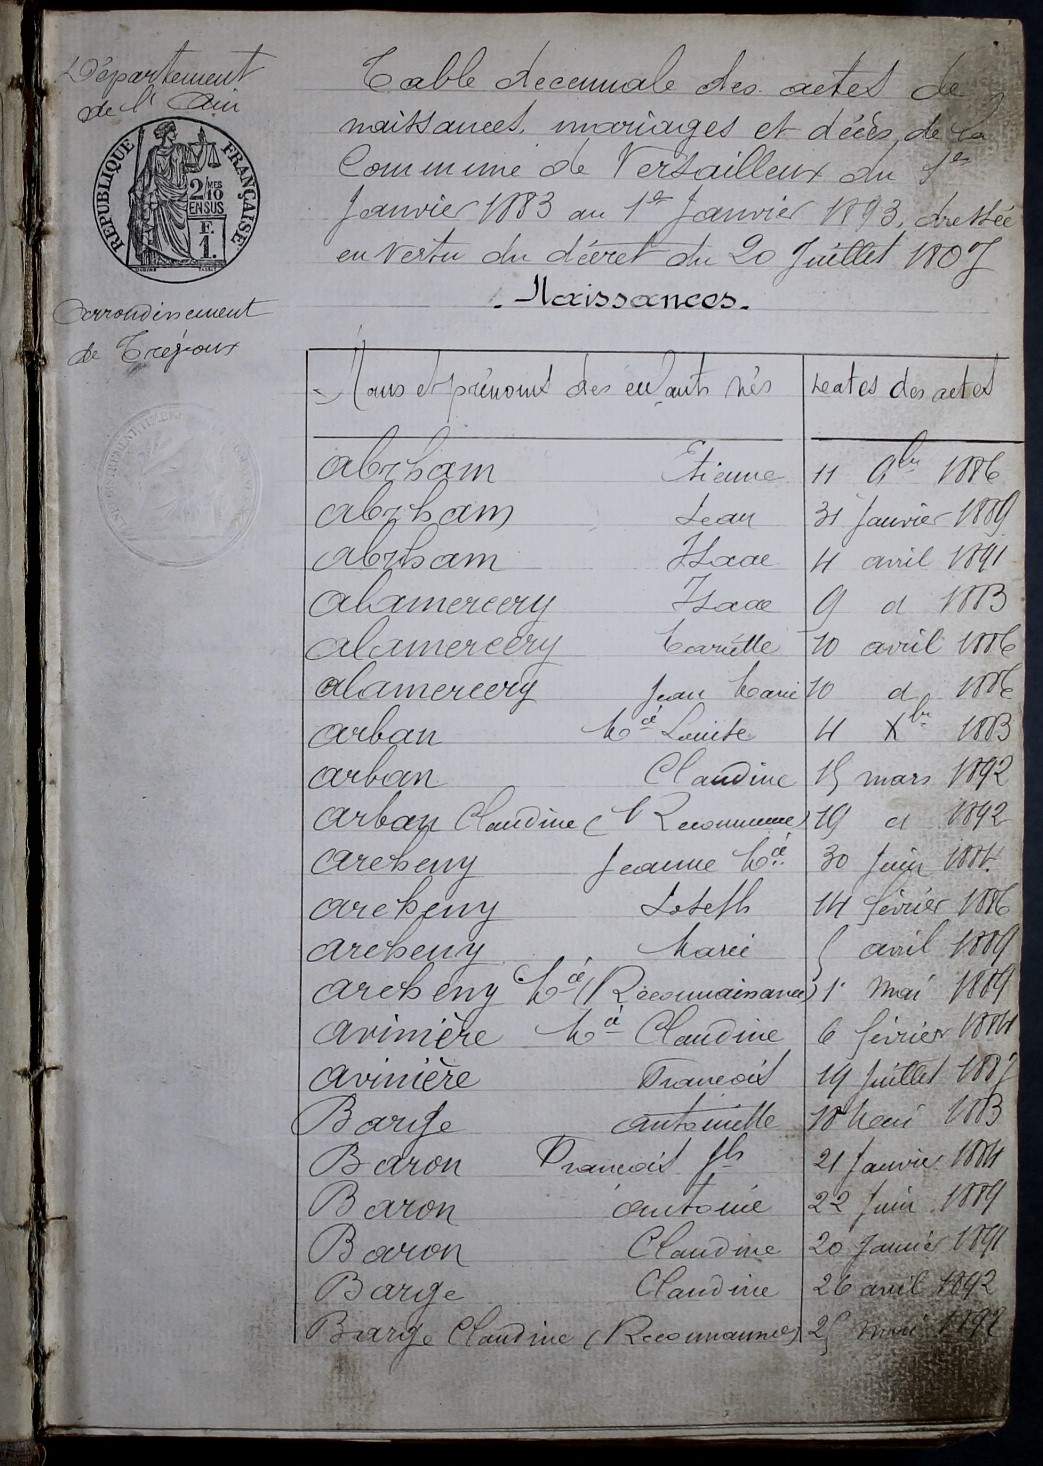 Département
de l'Ain
RÉPUBLIQUE FRANÇAISE
2/10 MES
EN SUS
F.
1.
Arrondissement
de Trévoux
Table decennale des actes de
naissances, mariages et décès, de la
Commune de Versailleux du 1er
Janvier 1883 au 1er Janvier 1893, dressée
en vertu du décret du 20 Juillet 1807
Naissances.
Noms et prénoms des enfants nés Dates des actes
Abrham Etienne 11 9bre 1886
Abrham Jean 31 Janvier 1889
Abrham Isaac 4 avril 1891
Alamercery Isaac 9 d 1883
Alamercery Mariette 10 avril 1886
Alamercery Jean Marie 10 d 1886
Arban Mie Louise 4 Xbre 1883
Arban Claudine 15 mars 1892
Arban Claudine (Reconnue) 19 d 1892
Archeny Jeanne Mie 30 Juin 1884
Archeny Joseph 14 février 1886
Archeny Marie 5 avril 1889
Archeny Mie (Reconnaissance) 1r Mai 1889
Avinière Mie Claudine 6 février 1884
Avinière François 19 Juillet 1887
Barge Antoinette 18 Mai 1883
Baron François Jh 21 Janvier 1884
Baron Antoine 22 Juin 1889
Baron Claudine 20 Janvier 1891
Barge Claudine 26 avril 1892
Barge Claudine (Reconnaunce) 25 mai 1892